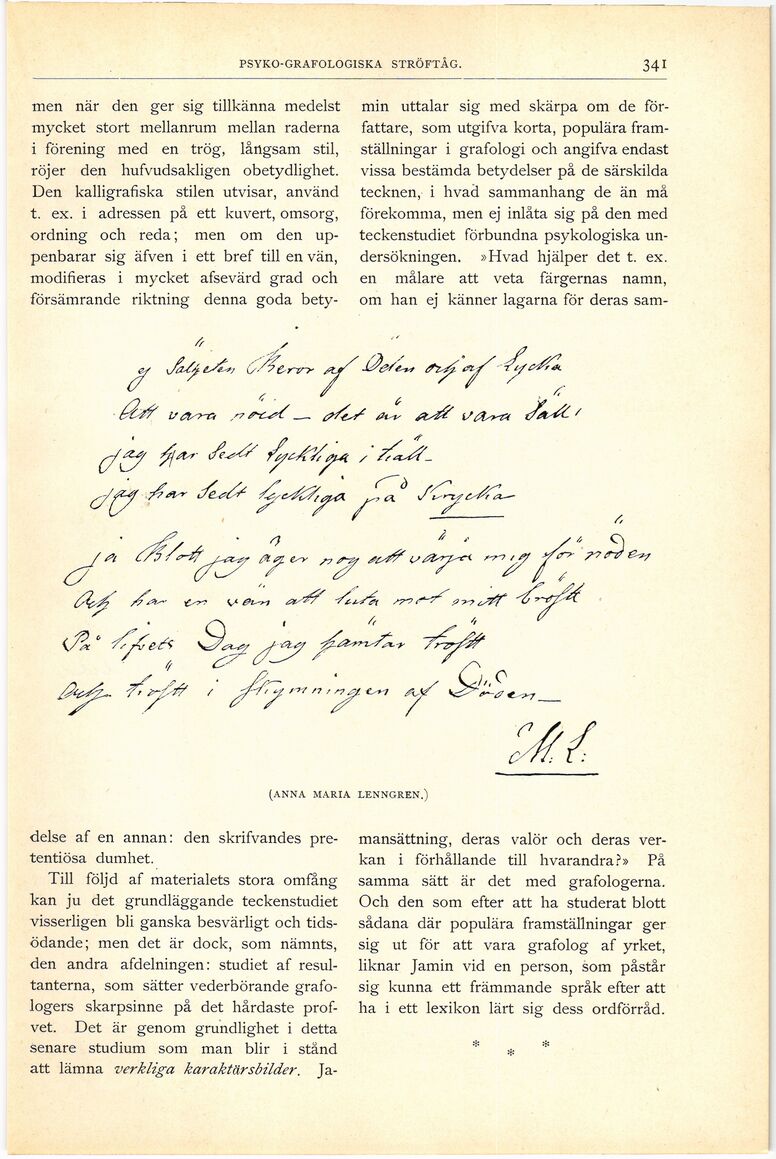 PSYKO-GRAFOLOGISKA STRÖFTÅG.
341
men när den ger sig tillkänna medelst
mycket stort mellanrum mellan raderna
i förening med en trög, långsam stil,
röjer den hufvudsakligen obetydlighet.
Den kalligrafiska stilen utvisar, använd
t. ex. i adressen på ett kuvert, omsorg,
ordning och reda; men om den up-
penbarar sig äfven i ett bref till en vän,
modifieras i mycket afsevärd grad och
försämrande riktning denna goda bety-
min uttalar sig med skärpa om de för-
fattare, som utgifva korta, populära fram-
ställningar i grafologi och angifva endast
vissa bestämda betydelser på de särskilda
tecknen, i hvad sammanhang de än må
förekomma, men ej inlåta sig på den med
teckenstudiet förbundna psykologiska un-
dersökningen. »Hvad hjälper det t. ex.
en målare att veta färgernas namn,
om han ej känner lagarna för deras sam-
ej Säljeten Beror af Delen och af Lycka
Att vara nöid — det är att vara Säll
jag har Sedt Lyckliga i tiäll —
jag har Sedt lyckliga på Krycka
ja Blott jag äger nog att värja mig för nöden
Och har en vän att luta mot mitt bröst
På lifvets Dag jag hämtar tröst
Och tröst i Skymningen af Döden —
M. L:
(ANNA MARIA LENNGREN.)
delse af en annan: den skrifvandes pre-
tentiösa dumhet.
Till följd af materialets stora omfång
kan ju det grundläggande teckenstudiet
visserligen bli ganska besvärligt och tids-
ödande; men det är dock, som nämnts,
den andra afdelningen: studiet af resul-
tanterna, som sätter vederbörande grafo-
logers skarpsinne på det hårdaste prof-
vet. Det är genom grundlighet i detta
senare studium som man blir i stånd
att lämna verkliga karaktärsbilder. Ja-
mansättning, deras valör och deras ver-
kan i förhållande till hvarandra?» På
samma sätt är det med grafologerna.
Och den som efter att ha studerat blott
sådana där populära framställningar ger
sig ut för att vara grafolog af yrket,
liknar Jamin vid en person, som påstår
sig kunna ett främmande språk efter att
ha i ett lexikon lärt sig dess ordförråd.
* * *